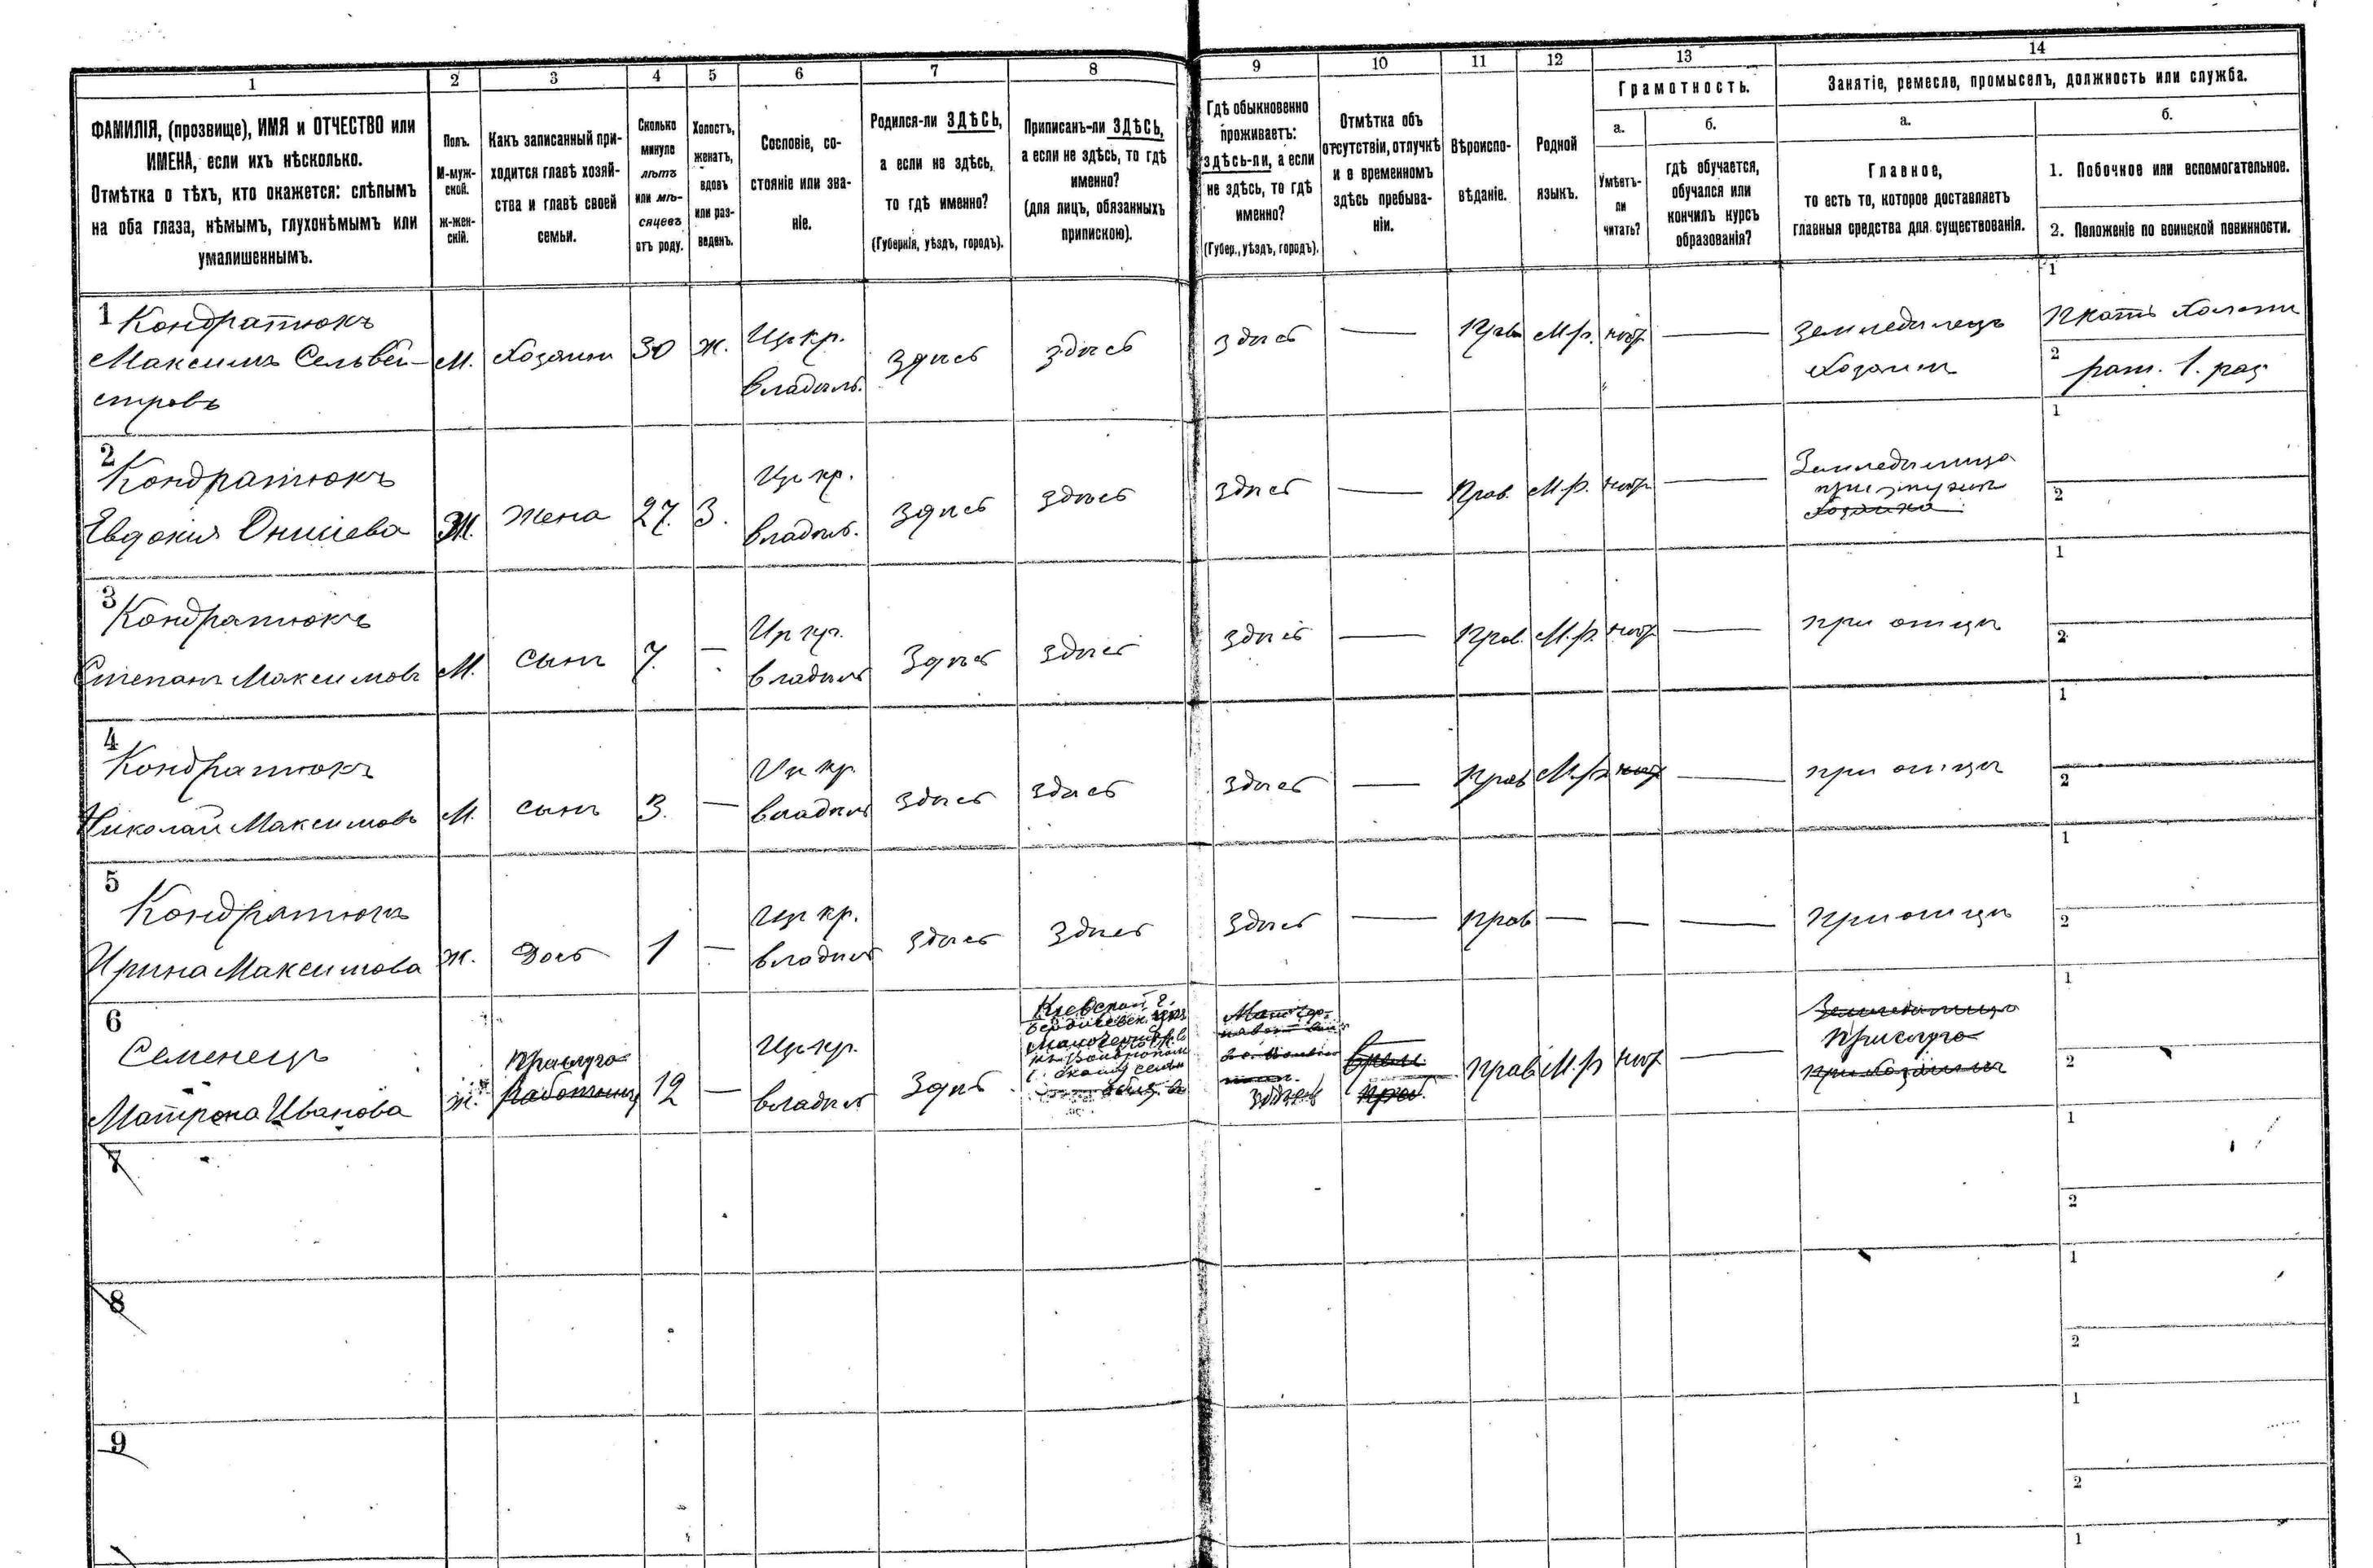 1
2
3
4
5
6
7
8
9
10
11
12
13
14
ФАМИЛІЯ, (прозвище), ИМЯ и ОТЧЕСТВО или
ИМЕНА, если ихъ нѣсколько.
Отмѣтка о тѣхъ, кто окажется: слѣпымъ
на оба глаза, нѣмымъ, глухонѣмымъ или
умалишеннымъ.
Полъ.
М-муж-
ской.
ж-жен-
скій.
Какъ записанный при-
ходится главѣ хозяй-
ства и главѣ своей
семьи.
Сколько
минуло
лѣтъ
или мѣ-
сяцевъ
отъ роду.
Холостъ,
женатъ,
вдовъ
или раз-
веденъ.
Сословіе, со-
стояніе или зва-
ніе.
Родился-ли ЗДѢСЬ,
а если не здѣсь,
то гдѣ именно?
(Губернія, уѣздъ, городъ).
Приписанъ-ли ЗДѢСЬ,
а если не здѣсь, то гдѣ
именно?
(для лицъ, обязанныхъ
припискою).
Гдѣ обыкновенно
проживаетъ:
здѣсь-ли, а если
не здѣсь, то гдѣ
именно?
(Губер., уѣздъ, городъ).
Отмѣтка объ
отсутствіи, отлучкѣ
и о временномъ
здѣсь пребыва-
ніи.
Вѣроиспо-
вѣданіе.
Родной
языкъ.
Грамотность.
а.
Умѣетъ-
ли
читать?
б.
гдѣ обучается,
обучался или
кончилъ курсъ
образованія?
Занятіе, ремесло, промыселъ, должность или служба.
а.
Главное,
то есть то, которое доставляетъ
главныя средства для существованія.
б.
1. Побочное или вспомогательное.
2. Положеніе по воинской повинности.
1 Кондратюкъ
Максимъ Сельвей-
стровъ
М.
Хозяинъ
30
Ж.
кр.
владѣль.
здѣсь
здѣсь
здѣсь
—
Прав
М.р.
нѣтъ
—
Земледѣлецъ
Хозяинъ
1
2 рат. 1. раз
2
Кондратюкъ
Евдокия Онисіева
Ж.
Жена
27.
З.
кр.
владѣль.
здѣсь
здѣсь
здѣсь
—
Прав.
М.р.
нѣтъ
—
Земледѣлица
при мужѣ
хозяйка
1
2
3
Кондратюкъ
Степанъ Максимовъ
М.
сынъ
7.
—
владѣль
здѣсь
здѣсь
здѣсь
—
Прав.
М.р.
нѣтъ
—
при отцѣ
1
2
4
Кондратюкъ
Николай Максимовъ
М.
сынъ
3.
—
кр.
владѣль
здѣсь
здѣсь
здѣсь
—
Прав
М.р
нѣтъ
—
при отцѣ
1
2
5
Кондратюкъ
Ирина Максимова
Ж.
Дочь
1
—
кр.
владѣль
здѣсь
здѣсь
здѣсь
—
Прав
—
—
—
При отцѣ
1
2
6
Семенецъ
Матрона Иванова
Ж.
Прислуга
Работниц
12
—
кр.
владѣль
здѣсь
Кіевской г.
Бердичевск. уѣз
здѣсь
Прав
М.р
нѣтъ
—
Земледѣлица
Прислуга
при хозяинѣ
1
2
7
1
2
8
1
2
9
1
2
1